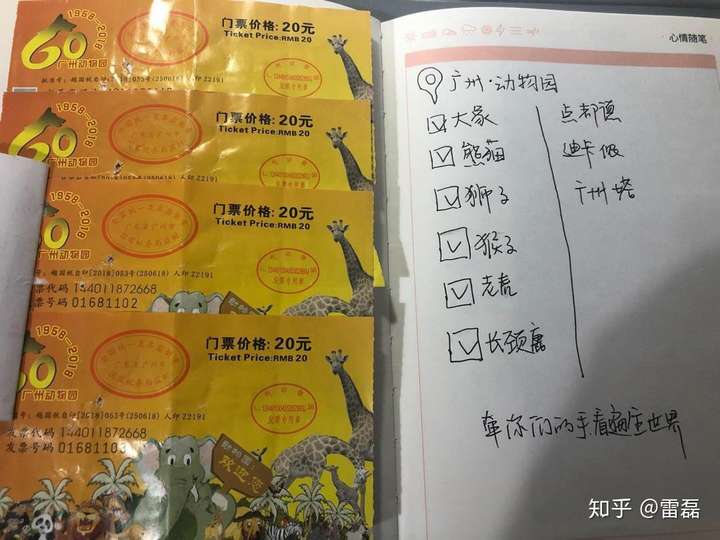 1958-2018
60
广州动物园
门票价格:20元
Ticket Price:RMB 20
1958-2018
60
广州动物园
门票价格:20元
Ticket Price:RMB 20
1958-2018
广州动物园
门票价格:20元
Ticket Price:RMB 20
批准号:越国税自印[2018]053号(250618) 人印 Z2191
发票代码 144011872668
发票号码 01681102
1958-2018
60
广州动物园
门票价格:20元
Ticket Price:RMB 20
越国税自印[2018]053号(250618) 人印 Z2191
发票代码 144011872668
发票号码 0168110
欢迎您
心情随笔
广州·动物园
大象
点都德
熊猫
迪卡侬
狮子
广州塔
猴子
老虎
长颈鹿
牵你们的手.看遍全世界
知乎 @雷磊